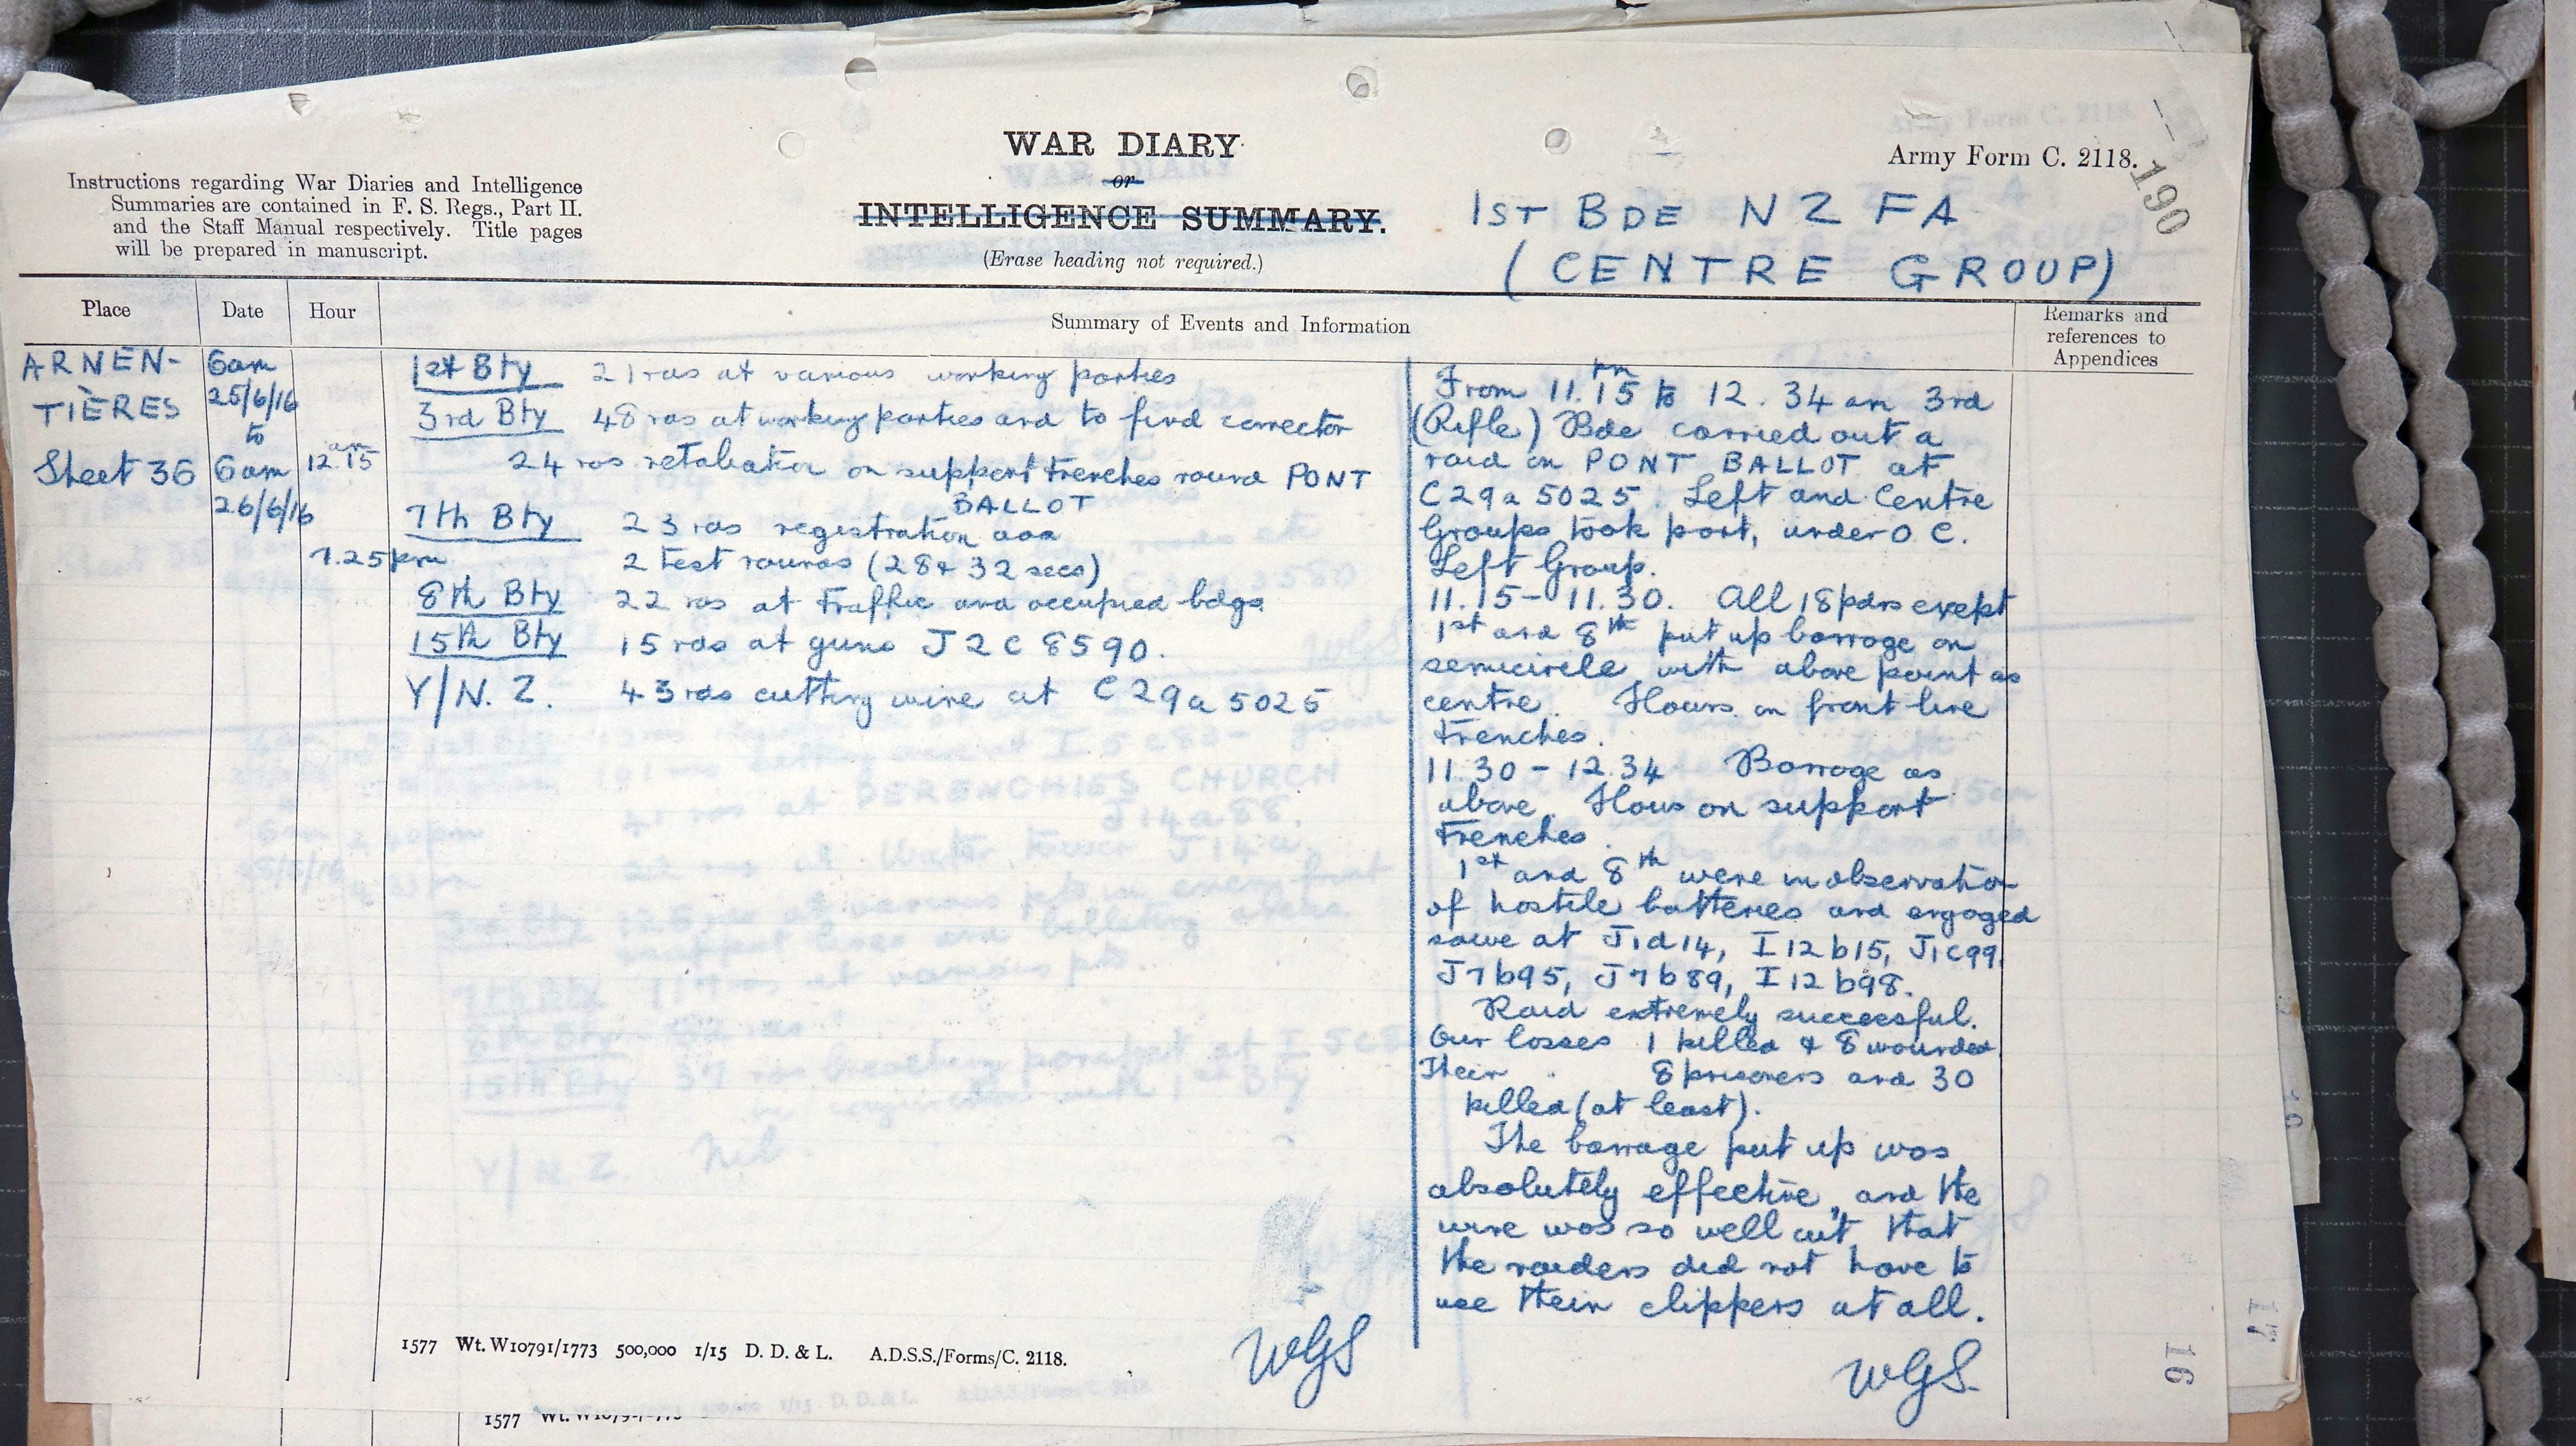 WAR DIARY
or
INTELLIGENCE SUMMARY.
(Erase heading not required.)
Instructions regarding War Diaries and Intelligence
Summaries are contained in F. S. Regs., Part II.
and the Staff Manual respectively. Title pages
will be prepared in manuscript.
Army Form C. 2118.
190
1ST BDE N Z FA
(CENTRE GROUP)
Place
Date
Hour
Summary of Events and Information
Remarks and
references to
Appendices
ARNEN-
TIÈRES
Sheet 36
6am
25/6/16
to
6am
26/6/16
12.15 am
7.25pm
1st Bty 21 rds at various working parties
3rd Bty 48 rds at working parties and to find corrector
24 rds retaliation on support trenches round PONT
BALLOT
7th Bty 23 rds registration aaa
2 test rounds (28 & 32 secs)
8th Bty 22 rds at traffic and occupied bdgs
15th Bty 15 rds at guns J2C 8590.
Y/N. Z. 43 rds cutting wire at C29a 5025
From 11.15 pm to 12.34 am 3rd
(Rifle) Bde carried out a
raid on PONT BALLOT at
C29a 5025. Left and Centre
Groups took part, under O.C.
Left Group.
11.15 - 11.30. All 18pdrs exept
1st and 8th put up barrage on
semicircle with above point as
centre. Hows. on front line
trenches.
11.30 - 12.34 Barrage as
above. Hows on support
trenches.
1st and 8th were in observation
of hostile batteries and engaged
same at J1d14, I12b15, J1c99,
J7b95, J7b89, I12b98.
Raid extremely successful.
Our losses 1 killed & 8 wounded
Their " 8 prisoners and 30
killed (at least).
The barrage put up was
absolutely effective, and the
wire was so well cut that
the raiders did not have to
use their clippers at all.
WGS
WGS.
1577 Wt. W10791/1773 500,000 1/15 D. D. & L. A.D.S.S./Forms/C. 2118.
16
17
1577